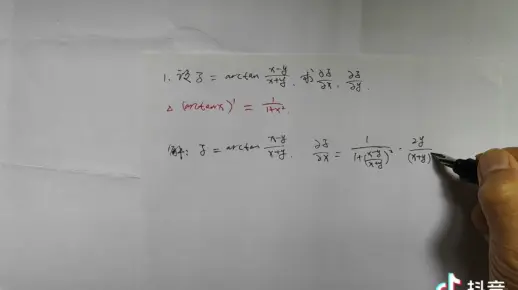 1. 设 z = arctan (x-y)/(x+y), 求 ∂z/∂x, ∂z/∂y.
△ (arctanx)' = 1/(1+x²)
解: z = arctan (x-y)/(x+y). ∂z/∂x = 1/(1+((x-y)/(x+y))²) · 2y/(x+y)
抖音